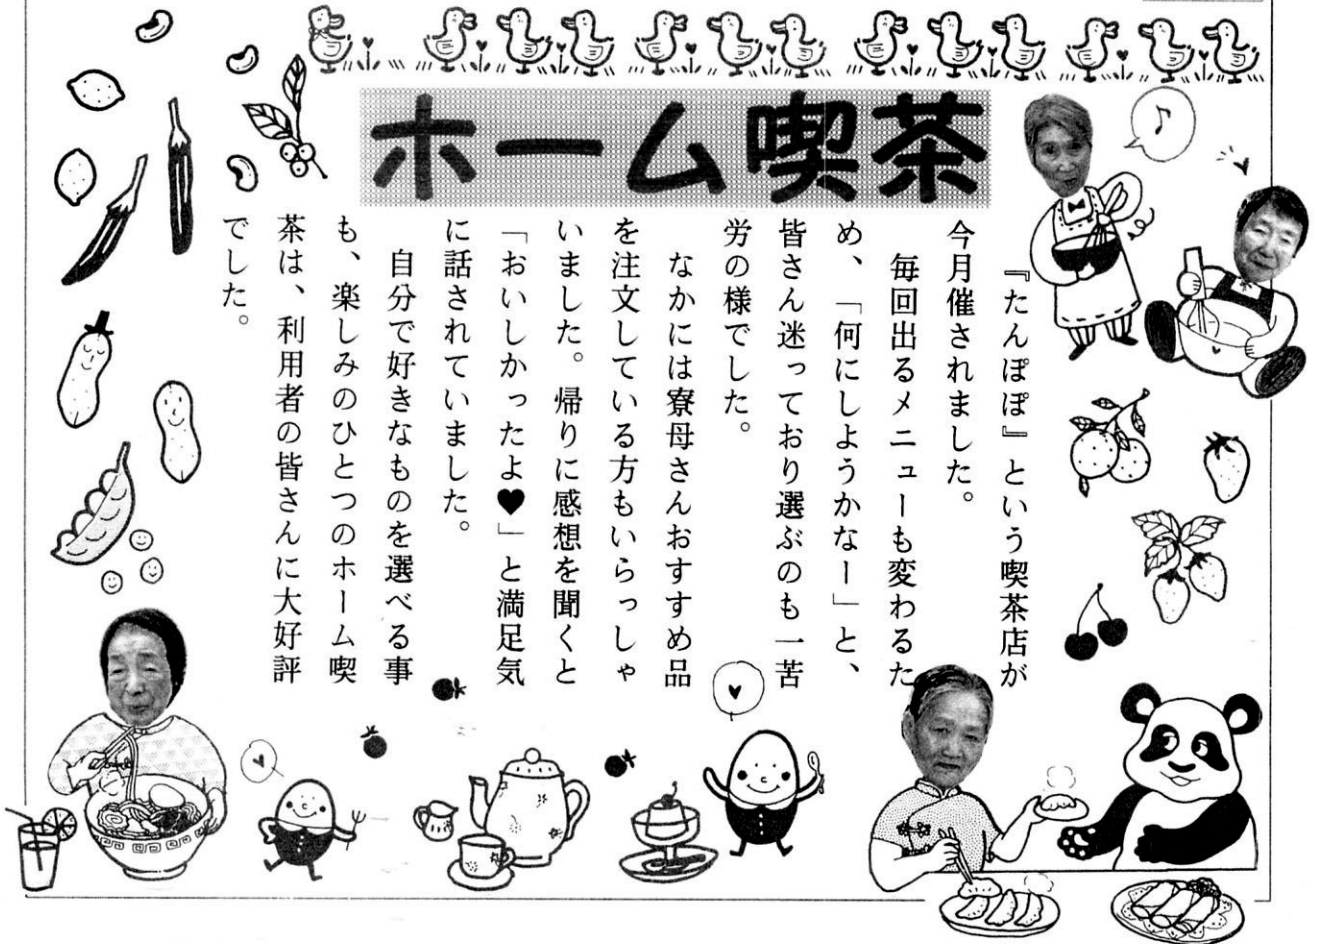 ホーム喫茶
『たんぽぽ』という喫茶店が
今月催されました。
毎回出るメニューも変わるた
め、「何にしようかなー」と、
皆さん迷っており選ぶのも一苦
労の様でした。
なかには寮母さんおすすめ品
を注文している方もいらっしゃ
いました。帰りに感想を聞くと
「おいしかったよ♥」と満足気
に話されていました。
自分で好きなものを選べる事
も、楽しみのひとつのホーム喫
茶は、利用者の皆さんに大好評
でした。